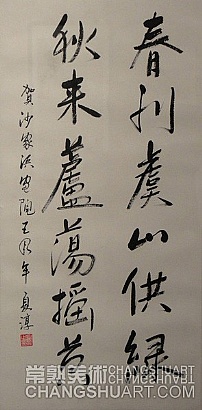 春到虞山供绿
秋来蘆荡摇
贺沙家浜電視五周年 夏淳
常熟美術 CHANGSHUART
CHANGSHUART.COM